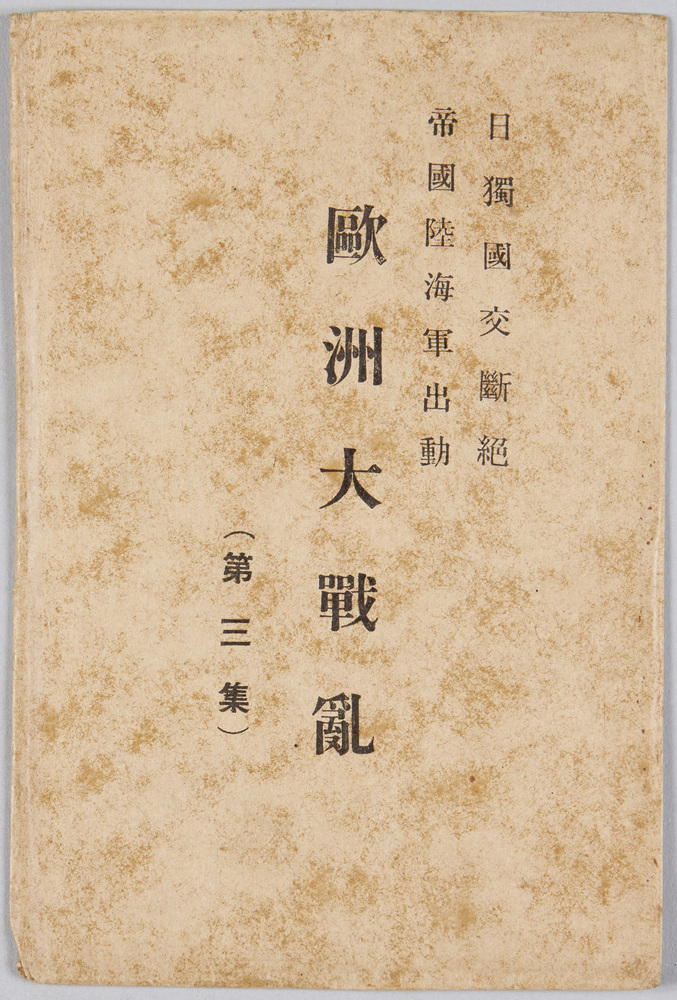 日獨國交斷絕
帝國陸海軍出動
歐洲大戰亂
（第三集）